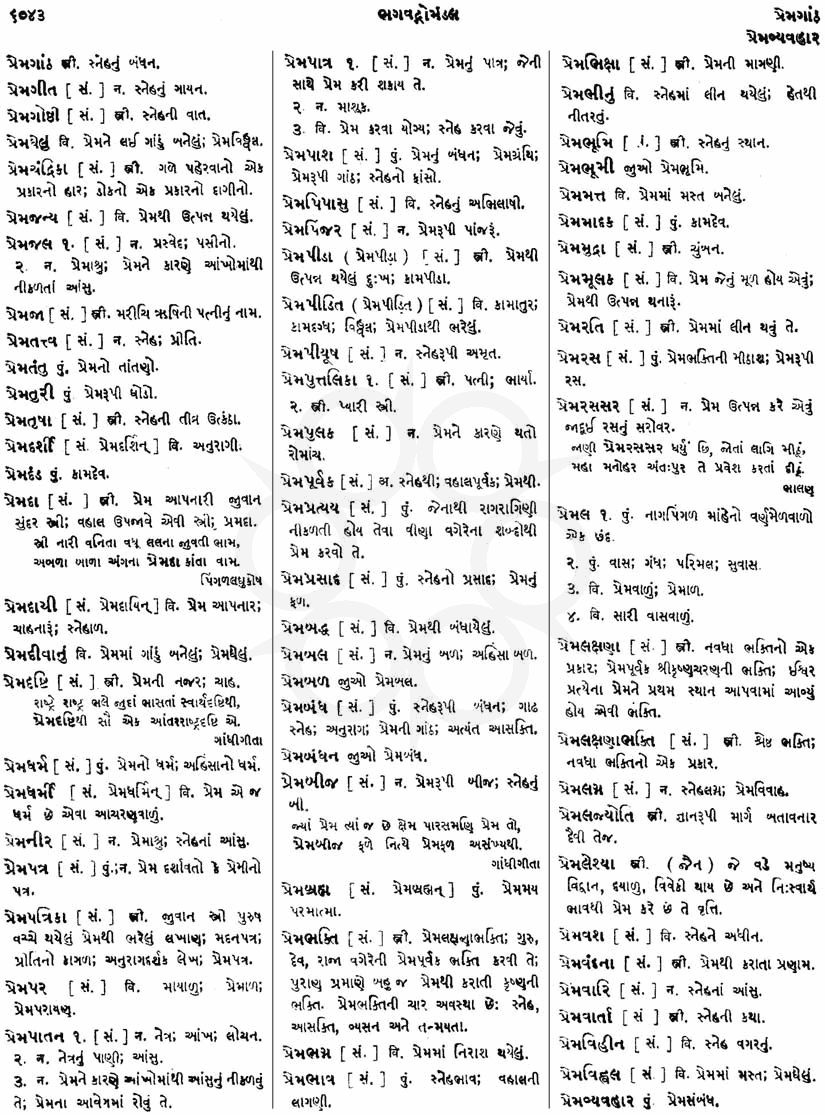 ૬૦૪૩
ભગવદ્ગોમંડલ
પ્રેમગાંઠ
પ્રેમવ્યવહાર
પ્રેમગાંઠ સ્ત્રી. સ્નેહનું બંધન.
પ્રેમગીત [ સં. ] ન. સ્નેહનું ગાયન.
પ્રેમગોષ્ઠી [ સં. ] સ્ત્રી. સ્નેહની વાત.
પ્રેમઘેલું વિ. પ્રેમને લઈ ગાંડું બનેલું; પ્રેમવિહ્વલ.
પ્રેમચંદ્રિકા [ સં. ] સ્ત્રી. ગળે પહેરવાનો એક
પ્રકારનો હાર; ડોકનો એક પ્રકારનો દાગીનો.
પ્રેમજન્ય [ સં. ] વિ. પ્રેમથી ઉત્પન્ન થયેલું.
પ્રેમજલ ૧. [ સં. ] ન. પ્રસ્વેદ; પસીનો.
૨. ન. પ્રેમાશ્રુ; પ્રેમને કારણે આંખોમાંથી
નીકળતાં આંસુ.
પ્રેમજા [ સં. ] સ્ત્રી. મરીચિ ઋષિની પત્નીનું નામ.
પ્રેમતત્ત્વ [ સં. ] ન. સ્નેહ; પ્રીતિ.
પ્રેમતંતુ પું. પ્રેમનો તાંતણો.
પ્રેમતુરી પું પ્રેમરૂપી ઘોડો.
પ્રેમતૃષા [ સં. ] સ્ત્રી. સ્નેહની તીવ્ર ઉત્કંઠા.
પ્રેમદર્શી [ સં. પ્રેમદર્શિન્ ] વિ. અનુરાગી.
પ્રેમદંડ પું. કામદેવ.
પ્રેમદા [ સં. ] સ્ત્રી. પ્રેમ આપનારી જુવાન
સુંદર સ્ત્રી; વહાલ ઉપજાવે એવી સ્ત્રી; પ્રમદા.
સ્ત્રી નારી વનિતા વધૂ લલના જુવતી ભામ,
અબળા બાળા અંગના પ્રેમદા કાંતા વામ.
પિંગળલઘુકોષ
પ્રેમદાયી [ સં. પ્રેમદાયિન્ ] વિ. પ્રેમ આપનાર;
ચાહનારું; સ્નેહાળ.
પ્રેમદીવાનું વિ. પ્રેમમાં ગાંડું બનેલું; પ્રેમઘેલું.
પ્રેમદૃષ્ટિ [ સં. ] સ્ત્રી. પ્રેમની નજર; ચાહ.
રાષ્ટ્રે રાષ્ટ્ર ભલે જુદાં ભાસતાં સ્વાર્થદૃષ્ટિથી,
પ્રેમદૃષ્ટિથી સૌ એક આંતરરાષ્ટ્રદૃષ્ટિ એ.
ગાંધીગીતા
પ્રેમધર્મ [ સં. ] પું. પ્રેમનો ધર્મ; અહિંસાનો ધર્મ.
પ્રેમધર્મી [ સં. પ્રેમધર્મિન્ ] વિ. પ્રેમ એ જ
ધર્મ છે એવા આચરણવાળું.
પ્રેમનીર [ સં. ] ન. પ્રેમાશ્રુ; સ્નેહનાં આંસુ.
પ્રેમપત્ર [ સં. ] પું.;ન. પ્રેમ દર્શાવતો કે પ્રેમીનો
પત્ર.
પ્રેમપત્રિકા [ સં. ] સ્ત્રી. જુવાન સ્ત્રી પુરુષ
વચ્ચે થયેલું પ્રેમથી ભરેલું લખાણ; મદનપત્ર;
પ્રીતિનો કાગળ; અનુરાગદર્શક લેખ; પ્રેમપત્ર.
પ્રેમપર [ સં. ] વિ. માયાળુ; પ્રેમાળ;
પ્રેમપરાયણ.
પ્રેમપાતન ૧. [ સં. ] ન. નેત્ર; આંખ; લોચન.
૨. ન. નેત્રનું પાણી; આંસુ.
૩. ન. પ્રેમને કારણે આંખોમાંથી આંસુનું નીકળવું
તે; પ્રેમના આવેગમાં રોવું તે.
પ્રેમપાત્ર ૧. [ સં. ] ન. પ્રેમનું પાત્ર; જેની
સાથે પ્રેમ કરી શકાય તે.
૨. ન. માશૂક.
૩. વિ. પ્રેમ કરવા યોગ્ય; સ્નેહ કરવા જેવું.
પ્રેમપાશ [ સં. ] પું. પ્રેમનું બંધન; પ્રેમગ્રંથિ;
પ્રેમરૂપી ગાંઠ; સ્નેહનો ફાંસો.
પ્રેમપિપાસુ [ સં. ] વિ. સ્નેહનું અભિલાષી.
પ્રેમપિંજર [ સં. ] ન. પ્રેમરૂપી પાંજરું.
પ્રેમપીડા ( પ્રેમપીડા ) [ સં. ] સ્ત્રી. પ્રેમથી
ઉત્પન્ન થયેલું દુઃખ; કામપીડા.
પ્રેમપીડિત ( પ્રેમપીડિત ) [ સં. ] વિ. કામાતુર;
કામદગ્ધ; વિહ્વલ; પ્રેમપીડાથી ભરેલું.
પ્રેમપીયૂષ [ સં. ] ન. સ્નેહરૂપી અમૃત.
પ્રેમપુત્તલિકા ૧. [ સં. ] સ્ત્રી. પત્ની; ભાર્યા.
૨. સ્ત્રી. પ્યારી સ્ત્રી.
પ્રેમપુલક [ સં. ] ન. પ્રેમને કારણે થતો
રોમાંચ.
પ્રેમપૂર્વક [ સં. ] અ. સ્નેહથી; વહાલપૂર્વક; પ્રેમથી.
પ્રેમપ્રત્યય [ સં. ] પું. જેનાથી રાગરાગિણી
નીકળતી હોય તેવા વીણા વગેરેના શબ્દોથી
પ્રેમ કરવો તે.
પ્રેમપ્રસાદ [ સં. ] પું. સ્નેહનો પ્રસાદ; પ્રેમનું
ફળ.
પ્રેમબદ્ધ [ સં. ] વિ. પ્રેમથી બંધાયેલું.
પ્રેમબલ [ સં. ] ન. પ્રેમનું બળ; અહિંસા બળ.
પ્રેમબળ જુઓ પ્રેમબલ.
પ્રેમબંધ [ સં. ] પું. સ્નેહરૂપી બંધન; ગાઢ
સ્નેહ; અનુરાગ; પ્રેમની ગાંઠ; અત્યંત આસક્તિ.
પ્રેમબંધન જુઓ પ્રેમબંધ.
પ્રેમબીજ [ સં. ] ન. પ્રેમરૂપી બીજ; સ્નેહનું
બી.
જ્યાં પ્રેમ ત્યાં જ છે ક્ષેમ પારસમણિ પ્રેમ તો,
પ્રેમબીજ ફળે નિત્યે પ્રેમફળ અસંખ્યથી.
ગાંધીગીતા
પ્રેમબ્રહ્મ [ સં. પ્રેમબ્રહ્મન્ ] પું. પ્રેમમય
પરમાત્મા.
પ્રેમભક્તિ [ સં. ] સ્ત્રી. પ્રેમલક્ષણાભક્તિ; ગુરુ,
દેવ, રાજા વગેરેની પ્રેમપૂર્વક ભક્તિ કરવી તે;
પુરાણ પ્રમાણે બહુ જ પ્રેમથી કરાતી કૃષ્ણની
ભક્તિ. પ્રેમભક્તિની ચાર અવસ્થા છેઃ સ્નેહ,
આસક્તિ, વ્યસન અને તન્મયતા.
પ્રેમભગ્ન [ સં. ] વિ. પ્રેમમાં નિરાશ થયેલું.
પ્રેમભાવ [ સં. ] પું. સ્નેહભાવ; વહાલની
લાગણી.
પ્રેમભિક્ષા [ સં. ] સ્ત્રી. પ્રેમની માગણી.
પ્રેમભીનું વિ. સ્નેહમાં લીન થયેલું; હેતથી
નીતરતું.
પ્રેમભૂમિ [ સં. ] સ્ત્રી. સ્નેહનું સ્થાન.
પ્રેમભૂમી જુઓ પ્રેમભૂમિ.
પ્રેમમત્ત વિ. પ્રેમમાં મસ્ત બનેલું.
પ્રેમમાદક [ સં. ] પું. કામદેવ.
પ્રેમમુદ્રા [ સં. ] સ્ત્રી. ચુંબન.
પ્રેમમૂલક [ સં. ] વિ. પ્રેમ જેનું મૂળ હોય એવું;
પ્રેમથી ઉત્પન્ન થનારું.
પ્રેમરતિ [ સં. ] સ્ત્રી. પ્રેમમાં લીન થવું તે.
પ્રેમરસ [ સં. ] પું. પ્રેમભક્તિની મીઠાશ; પ્રેમરૂપી
રસ.
પ્રેમરસસર [ સં. ] ન. પ્રેમ ઉત્પન્ન કરે એવું
જાદૂઈ રસનું સરોવર.
જાણી પ્રેમરસસર ધર્યું છિ, જોતાં લાગિ મીઠૂં,
મહા મનોહર અંતઃપુર તે પ્રવેશ કરતાં દીઠૂં.
ભાલણ
પ્રેમલ ૧. પું. નાગપિંગળ માંહેનો વર્ણમેળવાળો
એક છંદ.
૨. પું. વાસ; ગંધ; પરિમલ; સુવાસ.
૩. વિ. પ્રેમવાળું; પ્રેમાળ.
૪. વિ. સારી વાસવાળું.
પ્રેમલક્ષણા [ સં. ] સ્ત્રી. નવધા ભક્તિનો એક
પ્રકાર; પ્રેમપૂર્વક શ્રીકૃષ્ણચરણની ભક્તિ; ઈશ્વર
પ્રત્યેના પ્રેમને પ્રથમ સ્થાન આપવામાં આવ્યું
હોય એવી ભક્તિ.
પ્રેમલક્ષણાભક્તિ [ સં. ] સ્ત્રી. શ્રેષ્ઠ ભક્તિ;
નવધા ભક્તિનો એક પ્રકાર.
પ્રેમલગ્ન [ સં. ] ન. સ્નેહલગ્ન; પ્રેમવિવાહ.
પ્રેમલજ્યોતિ સ્ત્રી. જ્ઞાનરૂપી માર્ગ બતાવનાર
દૈવી તેજ.
પ્રેમલેશ્યા સ્ત્રી. ( જૈન ) જે વડે મનુષ્ય
વિદ્વાન, દયાળુ, વિવેકી થાય છે અને નિઃસ્વાર્થ
ભાવથી પ્રેમ કરે છે તે વૃત્તિ.
પ્રેમવશ [ સં. ] વિ. સ્નેહને અધીન.
પ્રેમવંદના [ સં. ] સ્ત્રી. પ્રેમથી કરાતા પ્રણામ.
પ્રેમવારિ [ સં. ] ન. સ્નેહનાં આંસુ.
પ્રેમવાર્તા [ સં. ] સ્ત્રી. સ્નેહની કથા.
પ્રેમવિહીન [ સં. ] વિ. સ્નેહ વગરનું.
પ્રેમવિહ્વલ [ સં. ] વિ. પ્રેમમાં મસ્ત; પ્રેમઘેલું.
પ્રેમવ્યવહાર પું. પ્રેમસંબંધ.